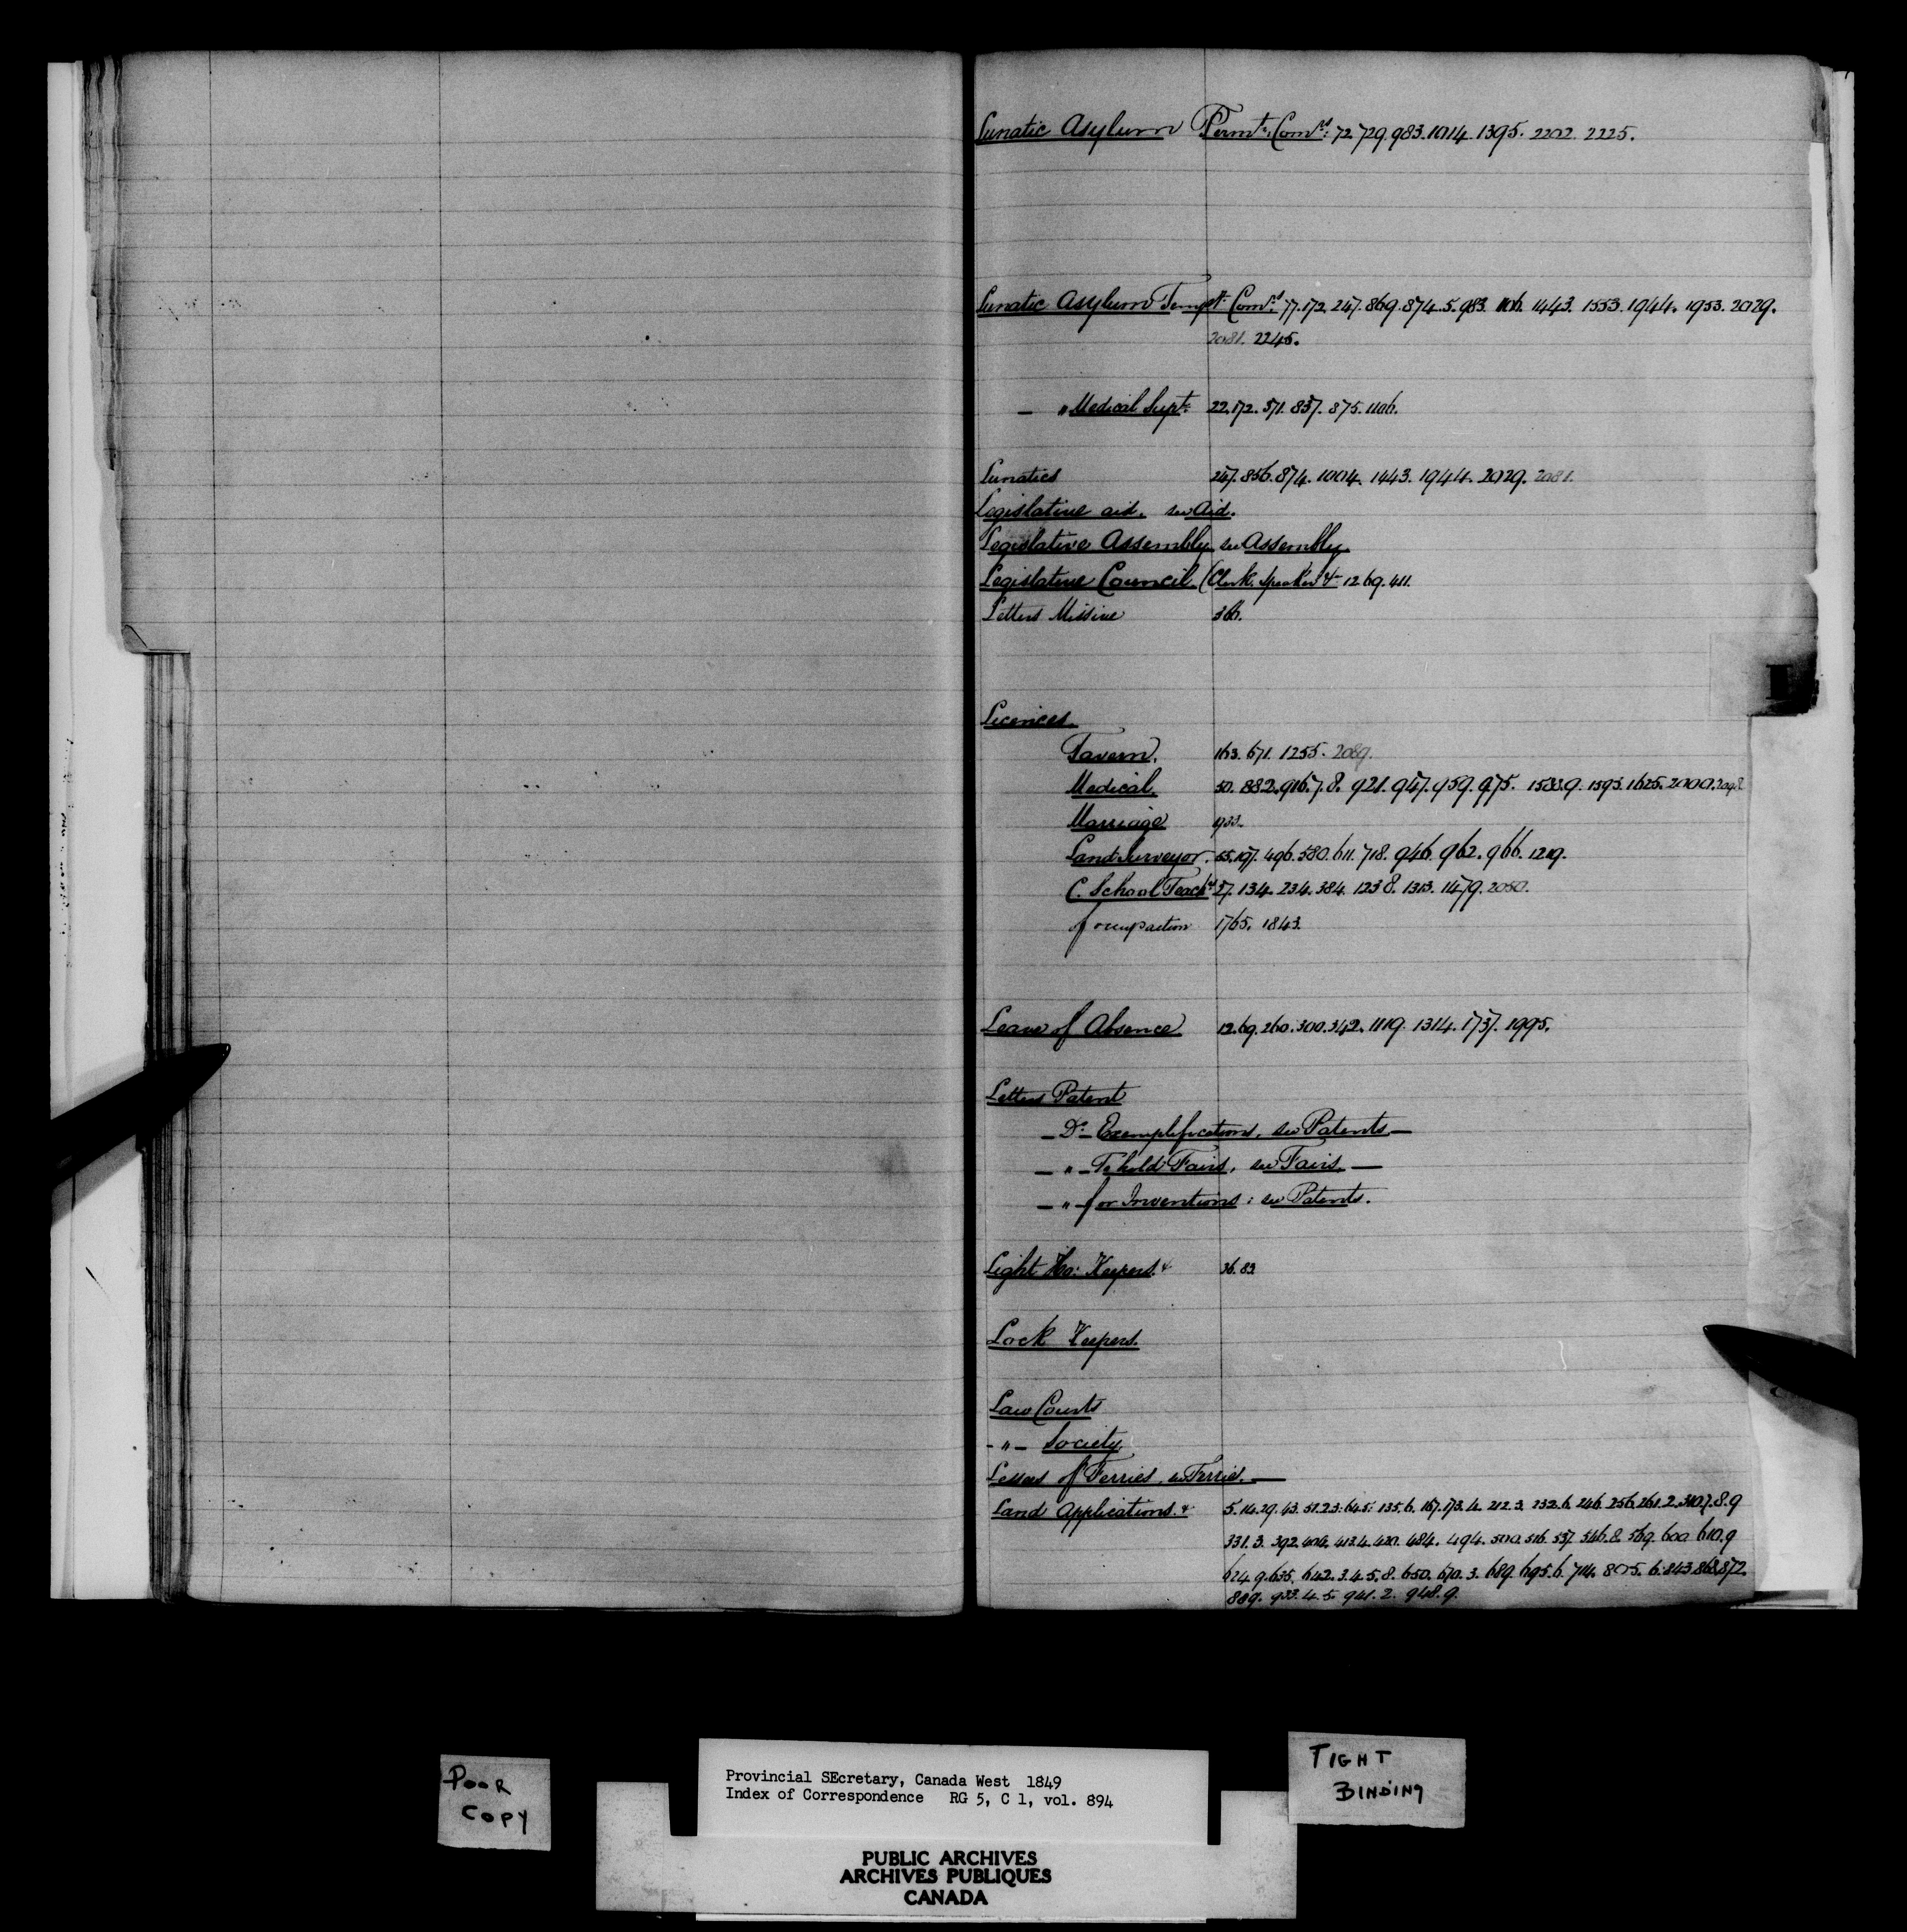 Lunatic Asylum Permt. Comrs: 72. 729. 983. 1014. 1395. 2202. 2225.
Lunatic Asylum Tempy. Comrs. 77. 172. 247. 869. 874. 5. 983. 1106. 1443. 1553. 1944. 1953. 2029.
2081. 2245.
— " Medical Supt. 22. 172. 571. 837. 875. 1106.
Lunatics 247. 856. 874. 1004. 1443. 1944. 2029. 2081.
Legislative aid. see Aid.
Legislative Assembly see Assembly.
Legislative Council (Clerk. Speaker &c 12 69. 411.
Letters Missive 366.
L
Licences.
Tavern. 163. 671. 1255. 2089.
Medical. 50. 882. 916. 7. 8. 921. 947. 959. 975. 1588. 9. 1593. 1625. 2000. 2098
Marriage 1933.
Land Surveyor. 55. 197. 496. 580. 611. 718. 946. 962. 966. 1219.
C. School Teachrs 27. 134. 234. 384. 1238. 1313. 1479. 2050.
of occupaction 1765. 1843.
Leave of Absence 12. 69. 260. 300. 342. 1119. 1314. 1737. 1995.
Letters Patent
— Do. — Exemplifications, see Patents —
— " — To hold Fairs, see Fairs. —
— " — for Inventions: see Patents.
Light Ho: Keepers. & 36. 83
Lock Keepers.
Law Courts
- " - Society
Lessees of Ferries, see Ferries. —
Land Applications. & 5. 14. 29. 43. 51. 2. 3. 64. 5. 135. 6. 167. 173. 4. 212. 3. 232. 6. 246. 256. 261. 2. 310. 7. 8. 9
331. 3. 392. 404. 413. 4. 420. 484. 494. 500. 516. 537. 546. 8. 569. 600. 610. 9
624. 9. 635. 642. 3. 4. 5. 8. 650. 670. 3. 689. 695. 6. 714. 805. 6. 843. 868. 872.
889. 933. 4. 5. 941. 2. 948. 9.
POOR
COPY
Provincial SEcretary, Canada West 1849
Index of Correspondence RG 5, C 1, vol. 894
TIGHT
BINDING
PUBLIC ARCHIVES
ARCHIVES PUBLIQUES
CANADA